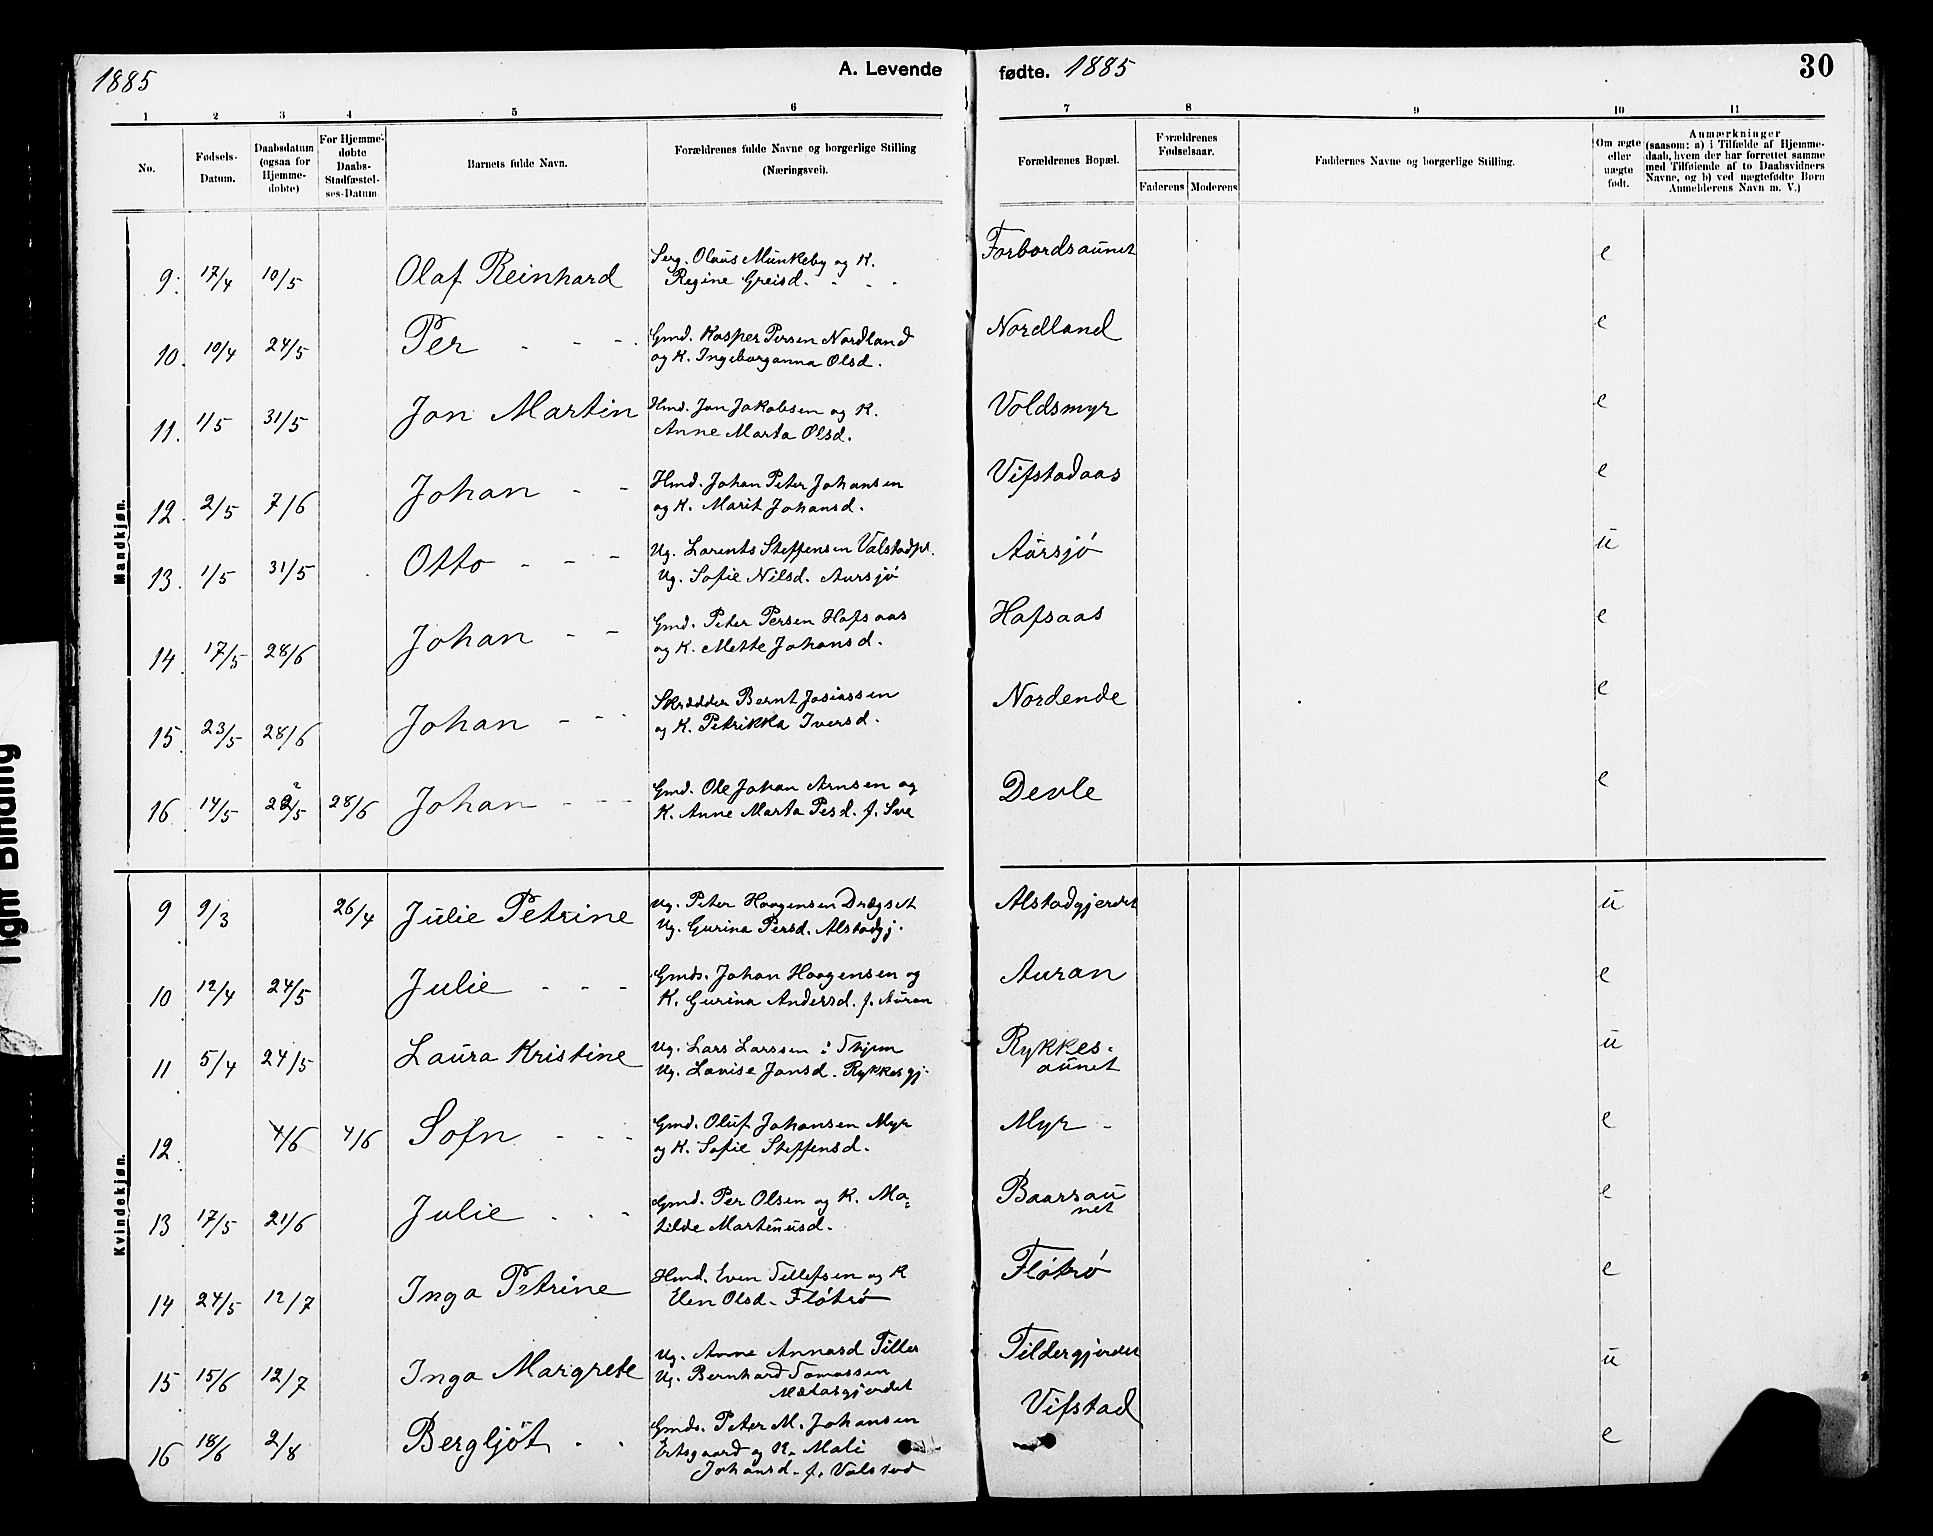 1885
A. Levende
fødte. 1885
30
1 2 3 4 5 6 7 8 9 10 11
No.
Fødsels-
Datum.
Daabsdatum
(ogsaa for
Hjemme-
døbte)
For Hjemme-
døbte
Daabs-
Stadfæstel-
ses-Datum.
Barnets fulde Navn.
Forældrenes fulde Navne og borgerlige Stilling
(Næringsvei).
Forældrenes Bopæl.
Forældrenes
Fødselsaar.
Faderens Moderens
Faddernes Navne og borgerlige Stilling.
Om ægte
eller
uægte
født.
Anmærkninger
(saasom: a) i Tilfælde af Hjemme-
daab, hvem der har forrettet samme
med Tilføiende af to Daabsvidners
Navne, og b) ved uægtefødte Børn
Anmelderens Navn m. V.)
Mandkjøn.
9. 17/4 10/5 Olaf Reinhard Serg. Olaus Munkeby og K. Forbordsaunet e
Regine Greisd. - - -
10. 10/4 24/5 Per - - - Gmd. Kasper Persen Nordland Nordland e
og K. Ingeborganna Olsd.
11. 1/5 31/5 Jon Martin Hmd. Jon Jakobsen og K. Voldsmyr e
Anne Marta Olsd.
12. 2/5 7/6 Johan - - Hmd. Johan Peter Johansen Vifstadaas e
og K. Marit Johansd.
13. 1/5 31/5 Otto - - - Ug. Lorents Steffensen Valstadpl. Aursjø u
Ug. Sofie Nilsd. Aursjø
14 17/5 28/6 Johan - - Gmd. Peter Persen Hafsaas Hafsaas e
og K. Mette Johansd.
15. 23/5 28/6 Johan - - - Skrædder Bernt Josiassen Nordende e
og K. Petrikka Iversd.
16. 14/5 22/5 28/6 Johan - - - Gmd. Ole Johan Arnsen og Devle e
K. Anne Marta Pesd. f. Sve
Kvindekjøn.
9 9/3 26/4 Julie Petrine Ug. Peter Haagensen Drægset Alstadgjerdet u
Ug. Gurina Persd. Alstadgj.
10 12/4 24/5 Julie - - - Gmds. Johan Haagensen og Auran e
K. Gurina Andersd. f. Auran
11 5/4 24/5 Laura Kristine Ug. Lars Larssen i Tkjem Rykkes-
aunet u
Ug. Lovise Jonsd. Rykkesgj.
12. 4/6 4/6 Sofn - - - Gmd. Oluf Johansen Myr Myr - e
og K. Sofie Steffensd.
13 17/5 21/6 Julie - - - Gmd. Per Olsen og K. Ma- Baarsau
net e
tilde Martinusd.
14 24/5 12/7 Inga Petrine Hmd. Even Tellefsen og K Fløtrø e
Elen Olsd. Fløtrø
15 15/6 12/7 Inga Margrete Ug. Anne Annasd Tiller Tildergjerdet u
Ug. Bernhard Tomassen
Mætasgjerdet
16 18/6 2/8 Bergljót - - Gmds. Peter M. Johansen Vifstad e
Ertsgaard og K. Mali
Johansd. f. Valstad
Tight Binding